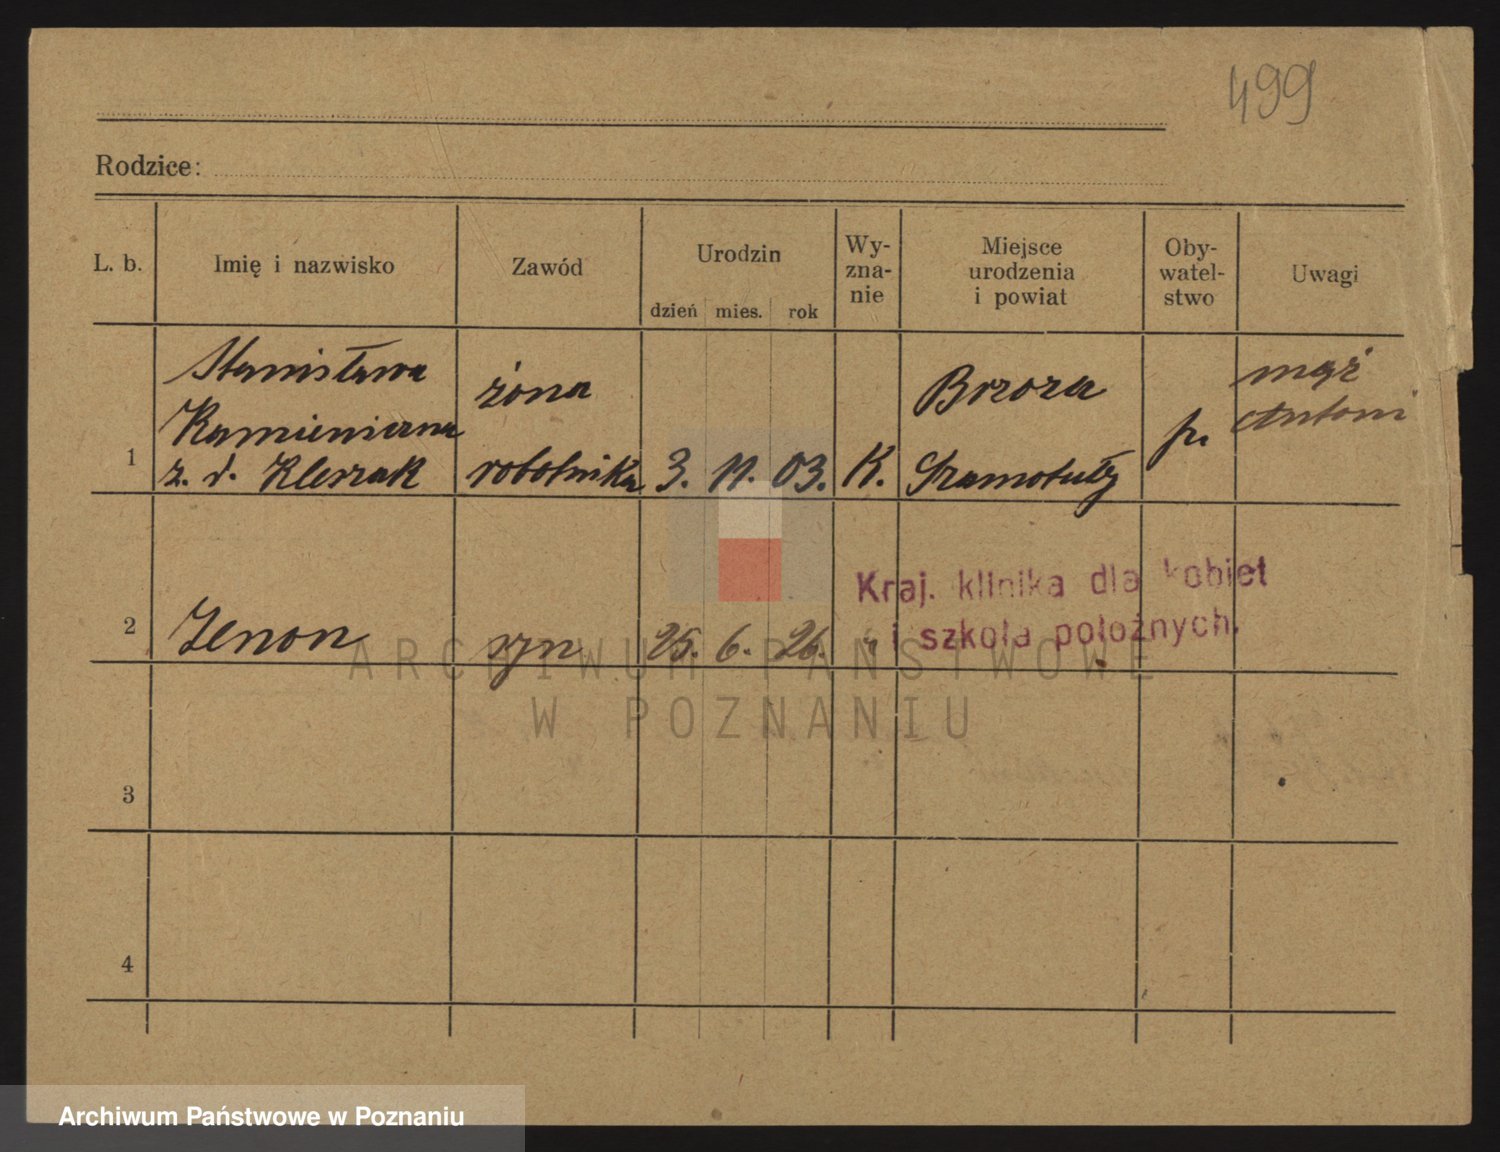 499
Rodzice:
L. b. Imię i nazwisko Zawód Urodzin dzień mies. rok Wy-zna-nie Miejsce urodzenia i powiat Oby-watel-stwo Uwagi
Stanisława żona Brzoza mąż
Kamieniarna Antoni
1 z. d. Kleszak robotnika 3. 11. 03. K. Szamotuły p.
Kraj. klinika dla kobiet
i szkoła położnych.
2 Zenon syn 25. 6. 26. "
ARCHIWUM PAŃSTWOWE
W POZNANIU
3
4
Archiwum Państwowe w Poznaniu